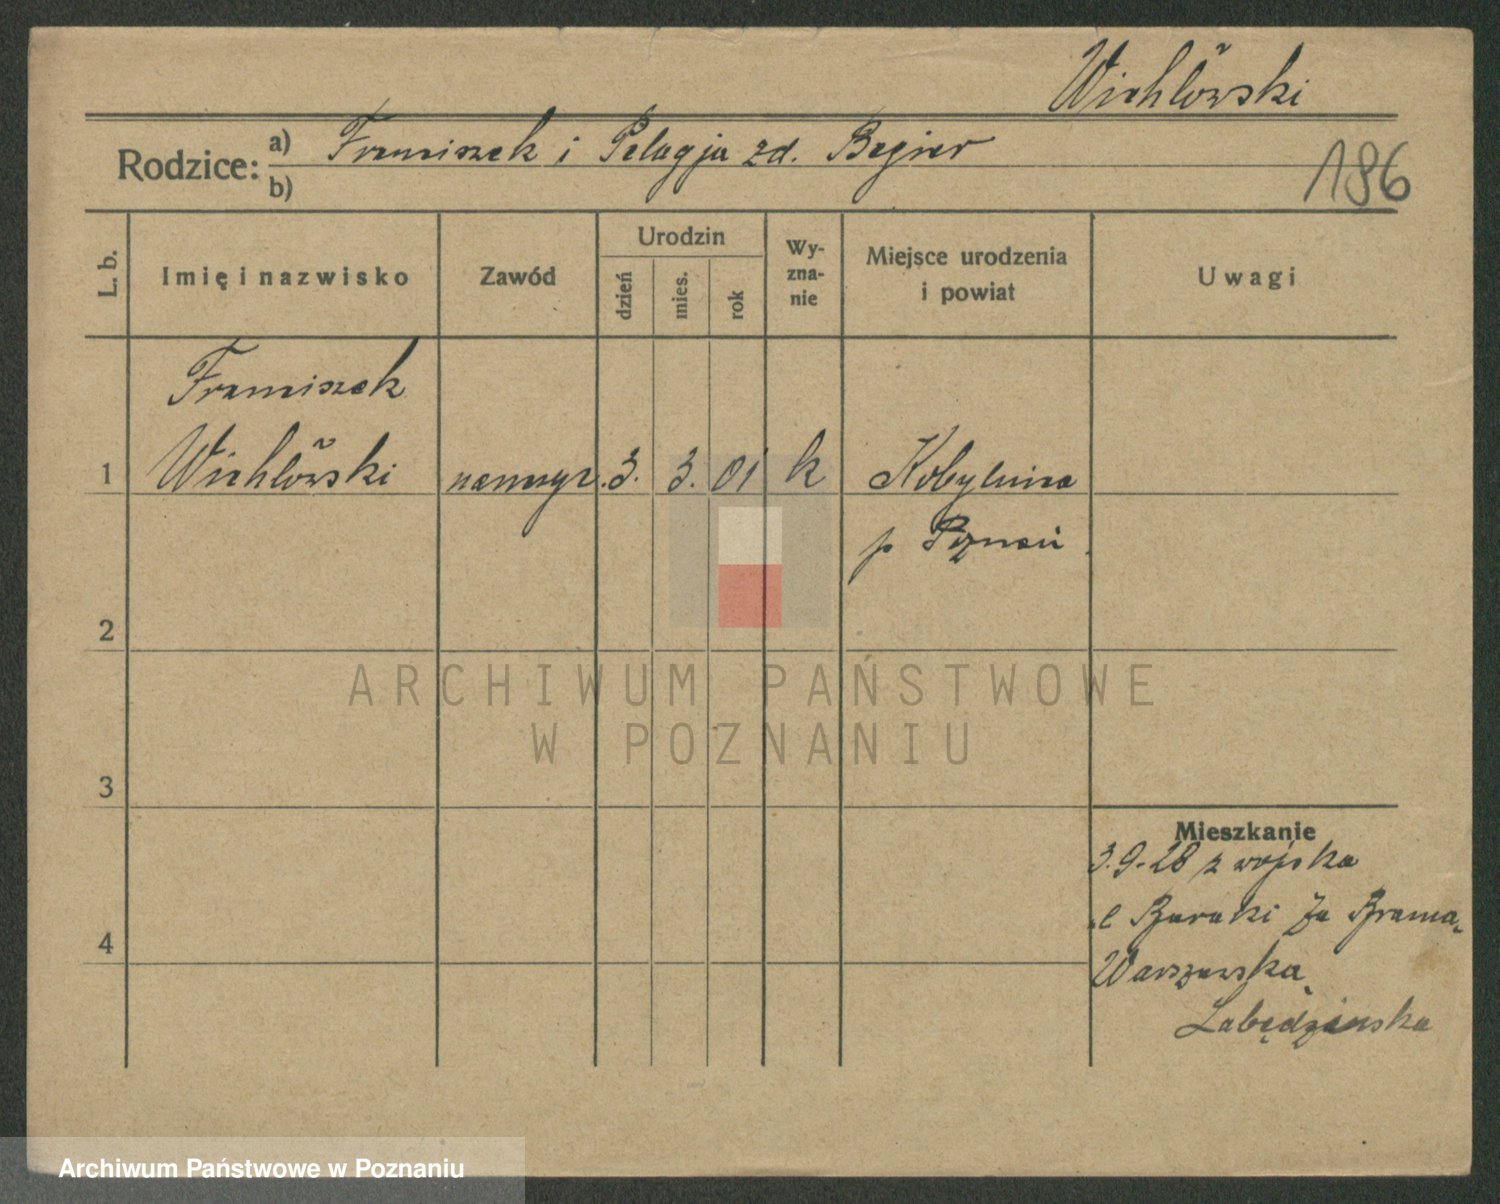 Wichłowski
Rodzice:
a) Franciszek i Pelagja zd. Begier
b)
186
L. b.
Imię i nazwisko
Zawód
Urodzin
dzień
mies.
rok
Wy-
zna-
nie
Miejsce urodzenia
i powiat
Uwagi
Franciszek
1 Wichłowski 3. 3. 01 k Kobylnica
p Poznań
2
3
4
Mieszkanie
3.9.28 z wojska
Baraki Za Bramą
Warszawską
Łabędzińska
ARCHIWUM PAŃSTWOWE
W POZNANIU
Archiwum Państwowe w Poznaniu